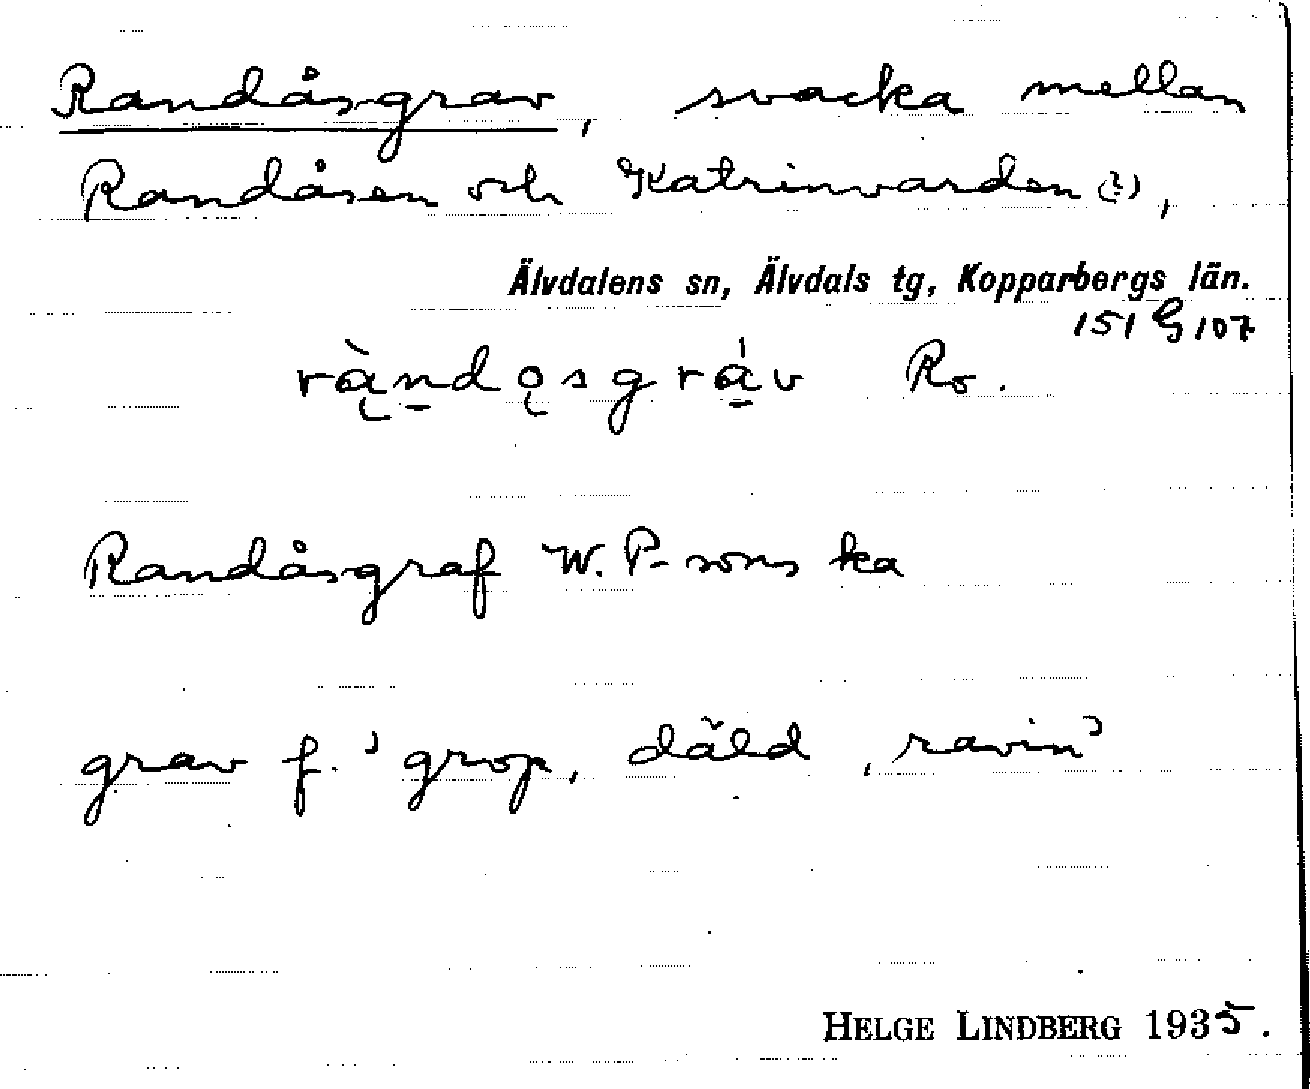 Randåsgrav, svacka mellan
Randåsen och Katrinvarden (?),
Älvdalens sn, Älvdals tg, Kopparbergs län.
151 G 107
rą̀n̲dǫsgrá̲v Ro.
Randåsgraf W. P-sons ka
grav f. 'grop, däld, ravin'
HELGE LINDBERG 1935.